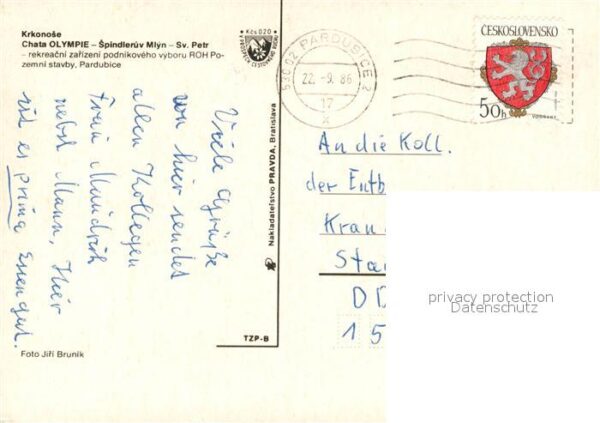 Krkonoše
Chata OLYMPIE – Špindlerův Mlýn – Sv. Petr
– rekreační zařízení podnikového výboru ROH Po-
zemní stavby, Pardubice
Kčs 0,20
530 02 PARDUBICE 2
22.-9. 86
17
x
ČESKOSLOVENSKO
50h
Viele Grüße
von hier sendet
allen Kollegen
Frau
nebst Mann, Hier
ist es prima Essen gut.
Nakladatelstvo PRAVDA, Bratislava
TZP-B
Foto Jiří Bruník
An die Koll.
der Entb
Kran
Sta
DD
15
privacy protection
Datenschutz